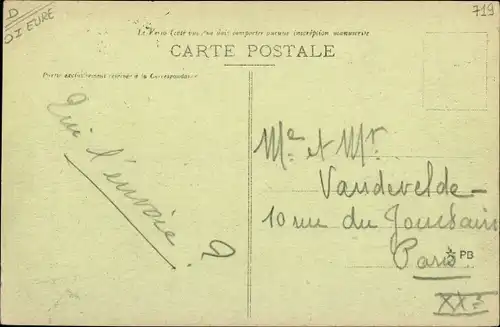 D
O.I EURE
719
Le Verso (côté vue) ne doit comporter aucune inscription manuscrite
CARTE POSTALE
Partie exclusivement réservée à la Correspondance
Qui l'envoie ?
Me et Mr.
Vandevelde
10 rue du Jourdain
Paris
PB
XXe